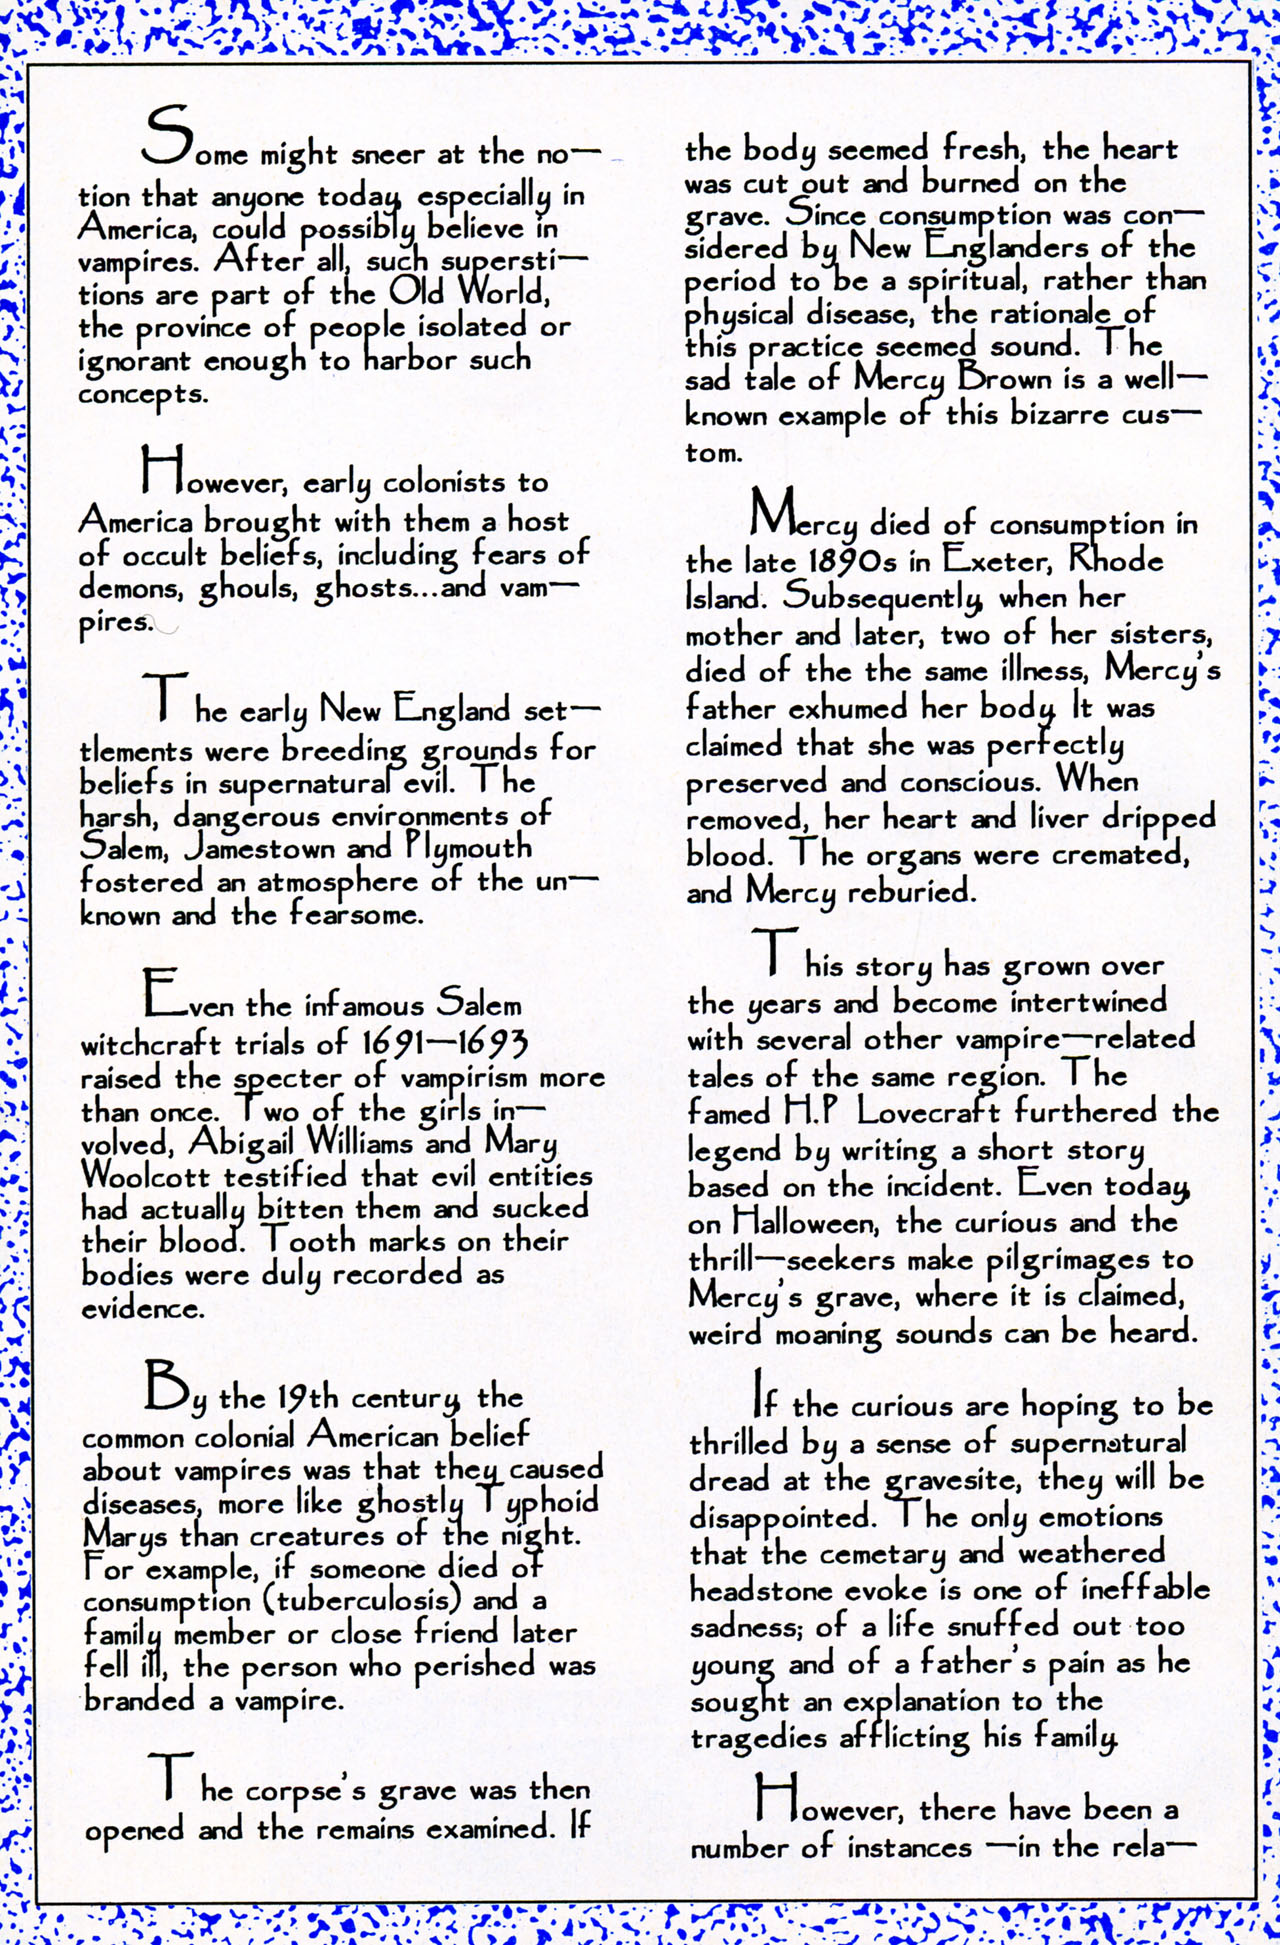 Some might sneer at the no—
tion that anyone today, especially in
America, could possibly believe in
vampires. After all, such supersti—
tions are part of the Old World,
the province of people isolated or
ignorant enough to harbor such
concepts.
However, early colonists to
America brought with them a host
of occult beliefs, including fears of
demons, ghouls, ghosts...and vam—
pires.
The early New England set—
tlements were breeding grounds for
beliefs in supernatural evil. The
harsh, dangerous environments of
Salem, Jamestown and Plymouth
fostered an atmosphere of the un—
known and the fearsome.
Even the infamous Salem
witchcraft trials of 1691—1693
raised the specter of vampirism more
than once. Two of the girls in—
volved, Abigail Williams and Mary
Woolcott testified that evil entities
had actually bitten them and sucked
their blood. Tooth marks on their
bodies were duly recorded as
evidence.
By the 19th century, the
common colonial American belief
about vampires was that they caused
diseases, more like ghostly Typhoid
Marys than creatures of the night.
For example, if someone died of
consumption (tuberculosis) and a
family member or close friend later
fell ill, the person who perished was
branded a vampire.
The corpse's grave was then
opened and the remains examined. If
the body seemed fresh, the heart
was cut out and burned on the
grave. Since consumption was con—
sidered by New Englanders of the
period to be a spiritual, rather than
physical disease, the rationale of
this practice seemed sound. The
sad tale of Mercy Brown is a well—
known example of this bizarre cus—
tom.
Mercy died of consumption in
the late 1890s in Exeter, Rhode
Island. Subsequently, when her
mother and later, two of her sisters,
died of the the same illness, Mercy's
father exhumed her body. It was
claimed that she was perfectly
preserved and conscious. When
removed, her heart and liver dripped
blood. The organs were cremated,
and Mercy reburied.
This story has grown over
the years and become intertwined
with several other vampire—related
tales of the same region. The
famed H.P Lovecraft furthered the
legend by writing a short story
based on the incident. Even today,
on Halloween, the curious and the
thrill—seekers make pilgrimages to
Mercy's grave, where it is claimed,
weird moaning sounds can be heard.
If the curious are hoping to be
thrilled by a sense of supernatural
dread at the gravesite, they will be
disappointed. The only emotions
that the cemetary and weathered
headstone evoke is one of ineffable
sadness; of a life snuffed out too
young and of a father's pain as he
sought an explanation to the
tragedies afflicting his family.
However, there have been a
number of instances —in the rela—